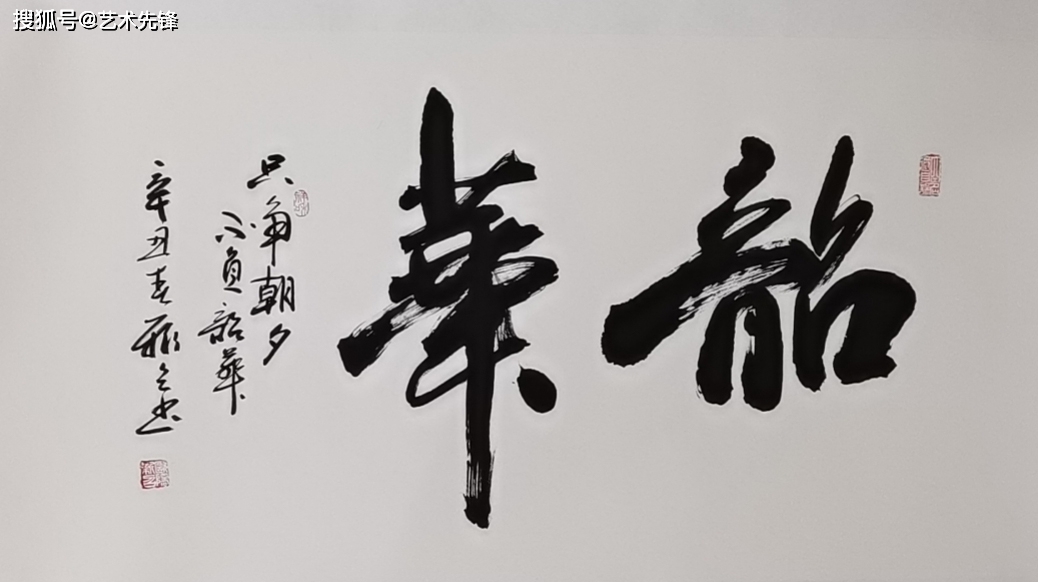 搜狐号@艺术先锋
韶華
只争朝夕
不負韶華
辛丑春雅之书